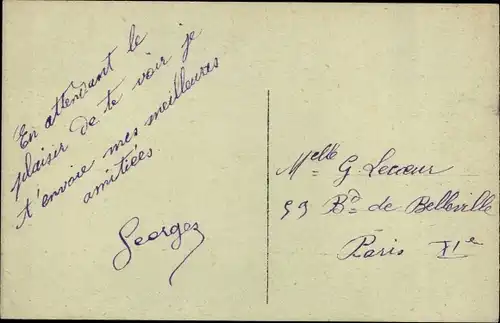 En attendant le
plaisir de te voir je
t'envoie mes meilleures
amitiées.
Georges
Melle G. Lecœur
59 Bd de Belleville
Paris XIe